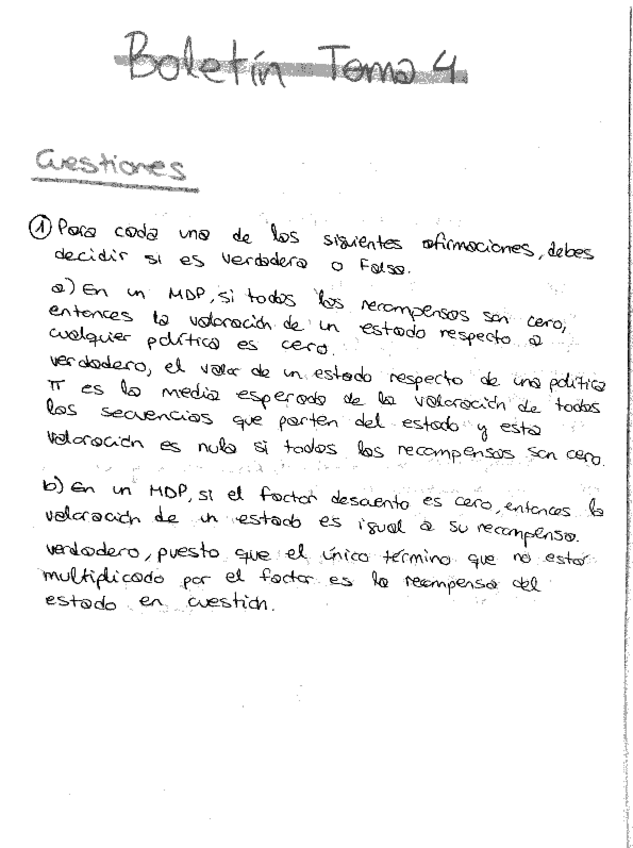 Boletín Tema 4.
Cuestiones
① Para cada una de las siguientes afirmaciones, debes
decidir si es verdadera o falsa.
a) En un MDP, si todas las recompensas son cero,
entonces la valoración de un estado respecto a
cualquier política es cero.
verdadero, el valor de un estado respecto de una política
π es la media esperada de la valoración de todas
las secuencias que parten del estado y esta
valoración es nula si todas las recompensas son cero.
b) En un MDP, si el factor descuento es cero, entonces la
valoración de un estado es igual a su recompensa.
verdadero, puesto que el único término que no estar
multiplicado por el factor es la recompensa del
estado en cuestión.